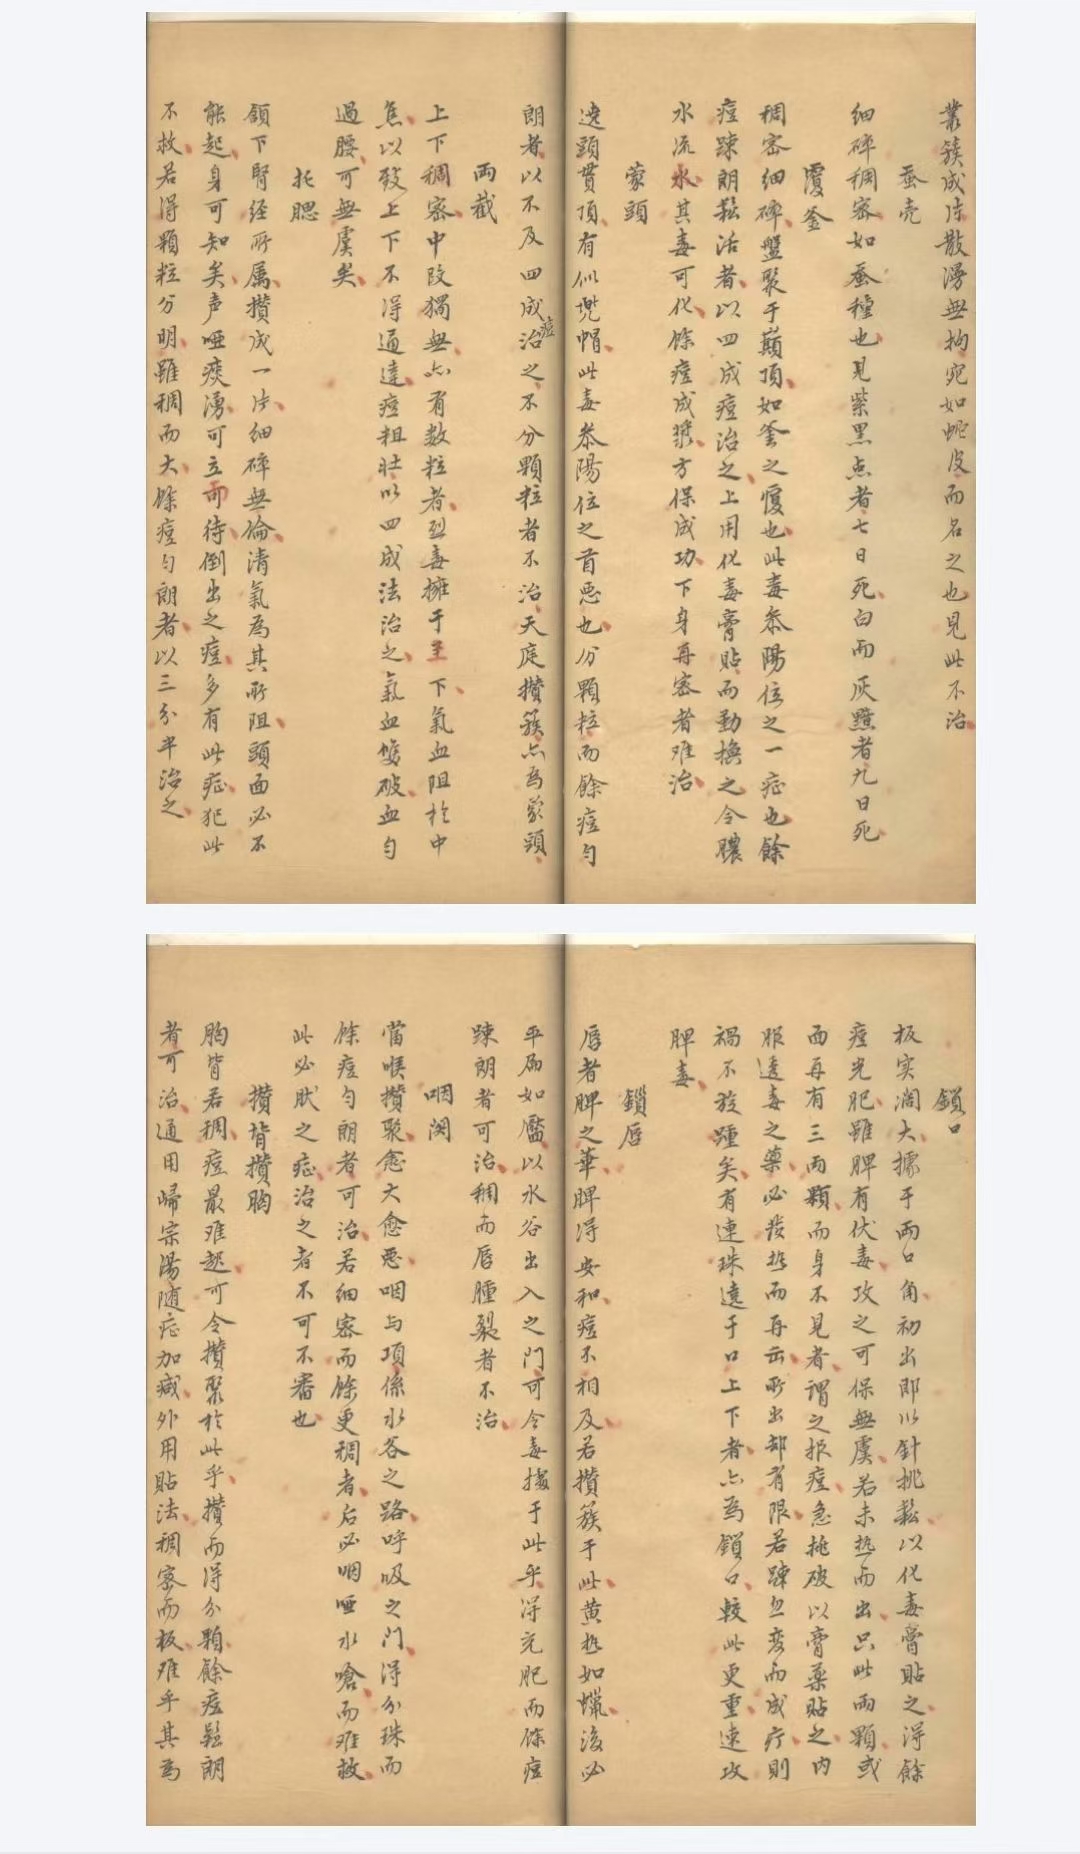 叢簇成片散漫無拘宛如蛇皮而名之也見此不治
蚕壳
細碎稠密如蚕種也見紫黑点者七日死白而灰黯者九日死
覆釜
稠密細碎盤聚于巔頂如釜之覆也此毒叅陽位之一症也餘
痘踈朗鬆活者以四成痘治之上用化毒膏貼而勤換之令膿
水流水其毒可化餘痘成漿方保成功下身再密者难治
蒙頭
遶頭貫頂有似兜帽此毒叅陽位之首惡也分顆粒而餘痘勻
朗者以不及四成痘治之不分顆粒者不治天庭攅簇亦為蒙頭
両截
上下稠密中段獨無亦有数粒者烈毒擁于至下氣血阻於中
焦以致上下不得通達痘粗壮以四成法治之氣血雙破血勻
過腰可無虞矣
托腮
頷下腎经所属攅成一片細碎無倫清氣為其所阻頭面必不
能起身可知矣声啞痰湧可立而待倒出之痘多有此症犯此
不救若得顆粒分明雖稠而大餘痘勻朗者以三分半治之
鎖口
板实濶大據于両口角初出即以針挑鬆以化毒膏貼之得餘
痘光肥雖脾有伏毒攻之可保無虞若未热而出只此両顆或
面再有三両顆而身不見者謂之报痘急挑破以膏藥貼之内
服透毒之藥必發热而再出所出部有限若踈忽变而成疔則
禍不旋踵矣有連珠遶于口上下者亦為鎖口較此更重速攻
脾毒
鎖唇
唇者脾之華脾得安和痘不相及若攅簇于此黄热如蠟後必
平扁如靨以水谷出入之門可令毒據于此乎得充肥而餘痘
踈朗者可治稠而唇腫裂者不治
咽関
當喉攅聚愈大愈惡咽与項係水谷之路呼吸之門得分珠而
餘痘勻朗者可治若細密而餘更稠者后必咽啞水嗆而难救
此必肰之症治之者不可不審也
攅背攅胸
胸背若稠痘最难起可令攅聚於此乎攅而得分顆餘痘鬆朗
者可治通用歸宗湯随症加减外用貼法稠密而板难乎其為